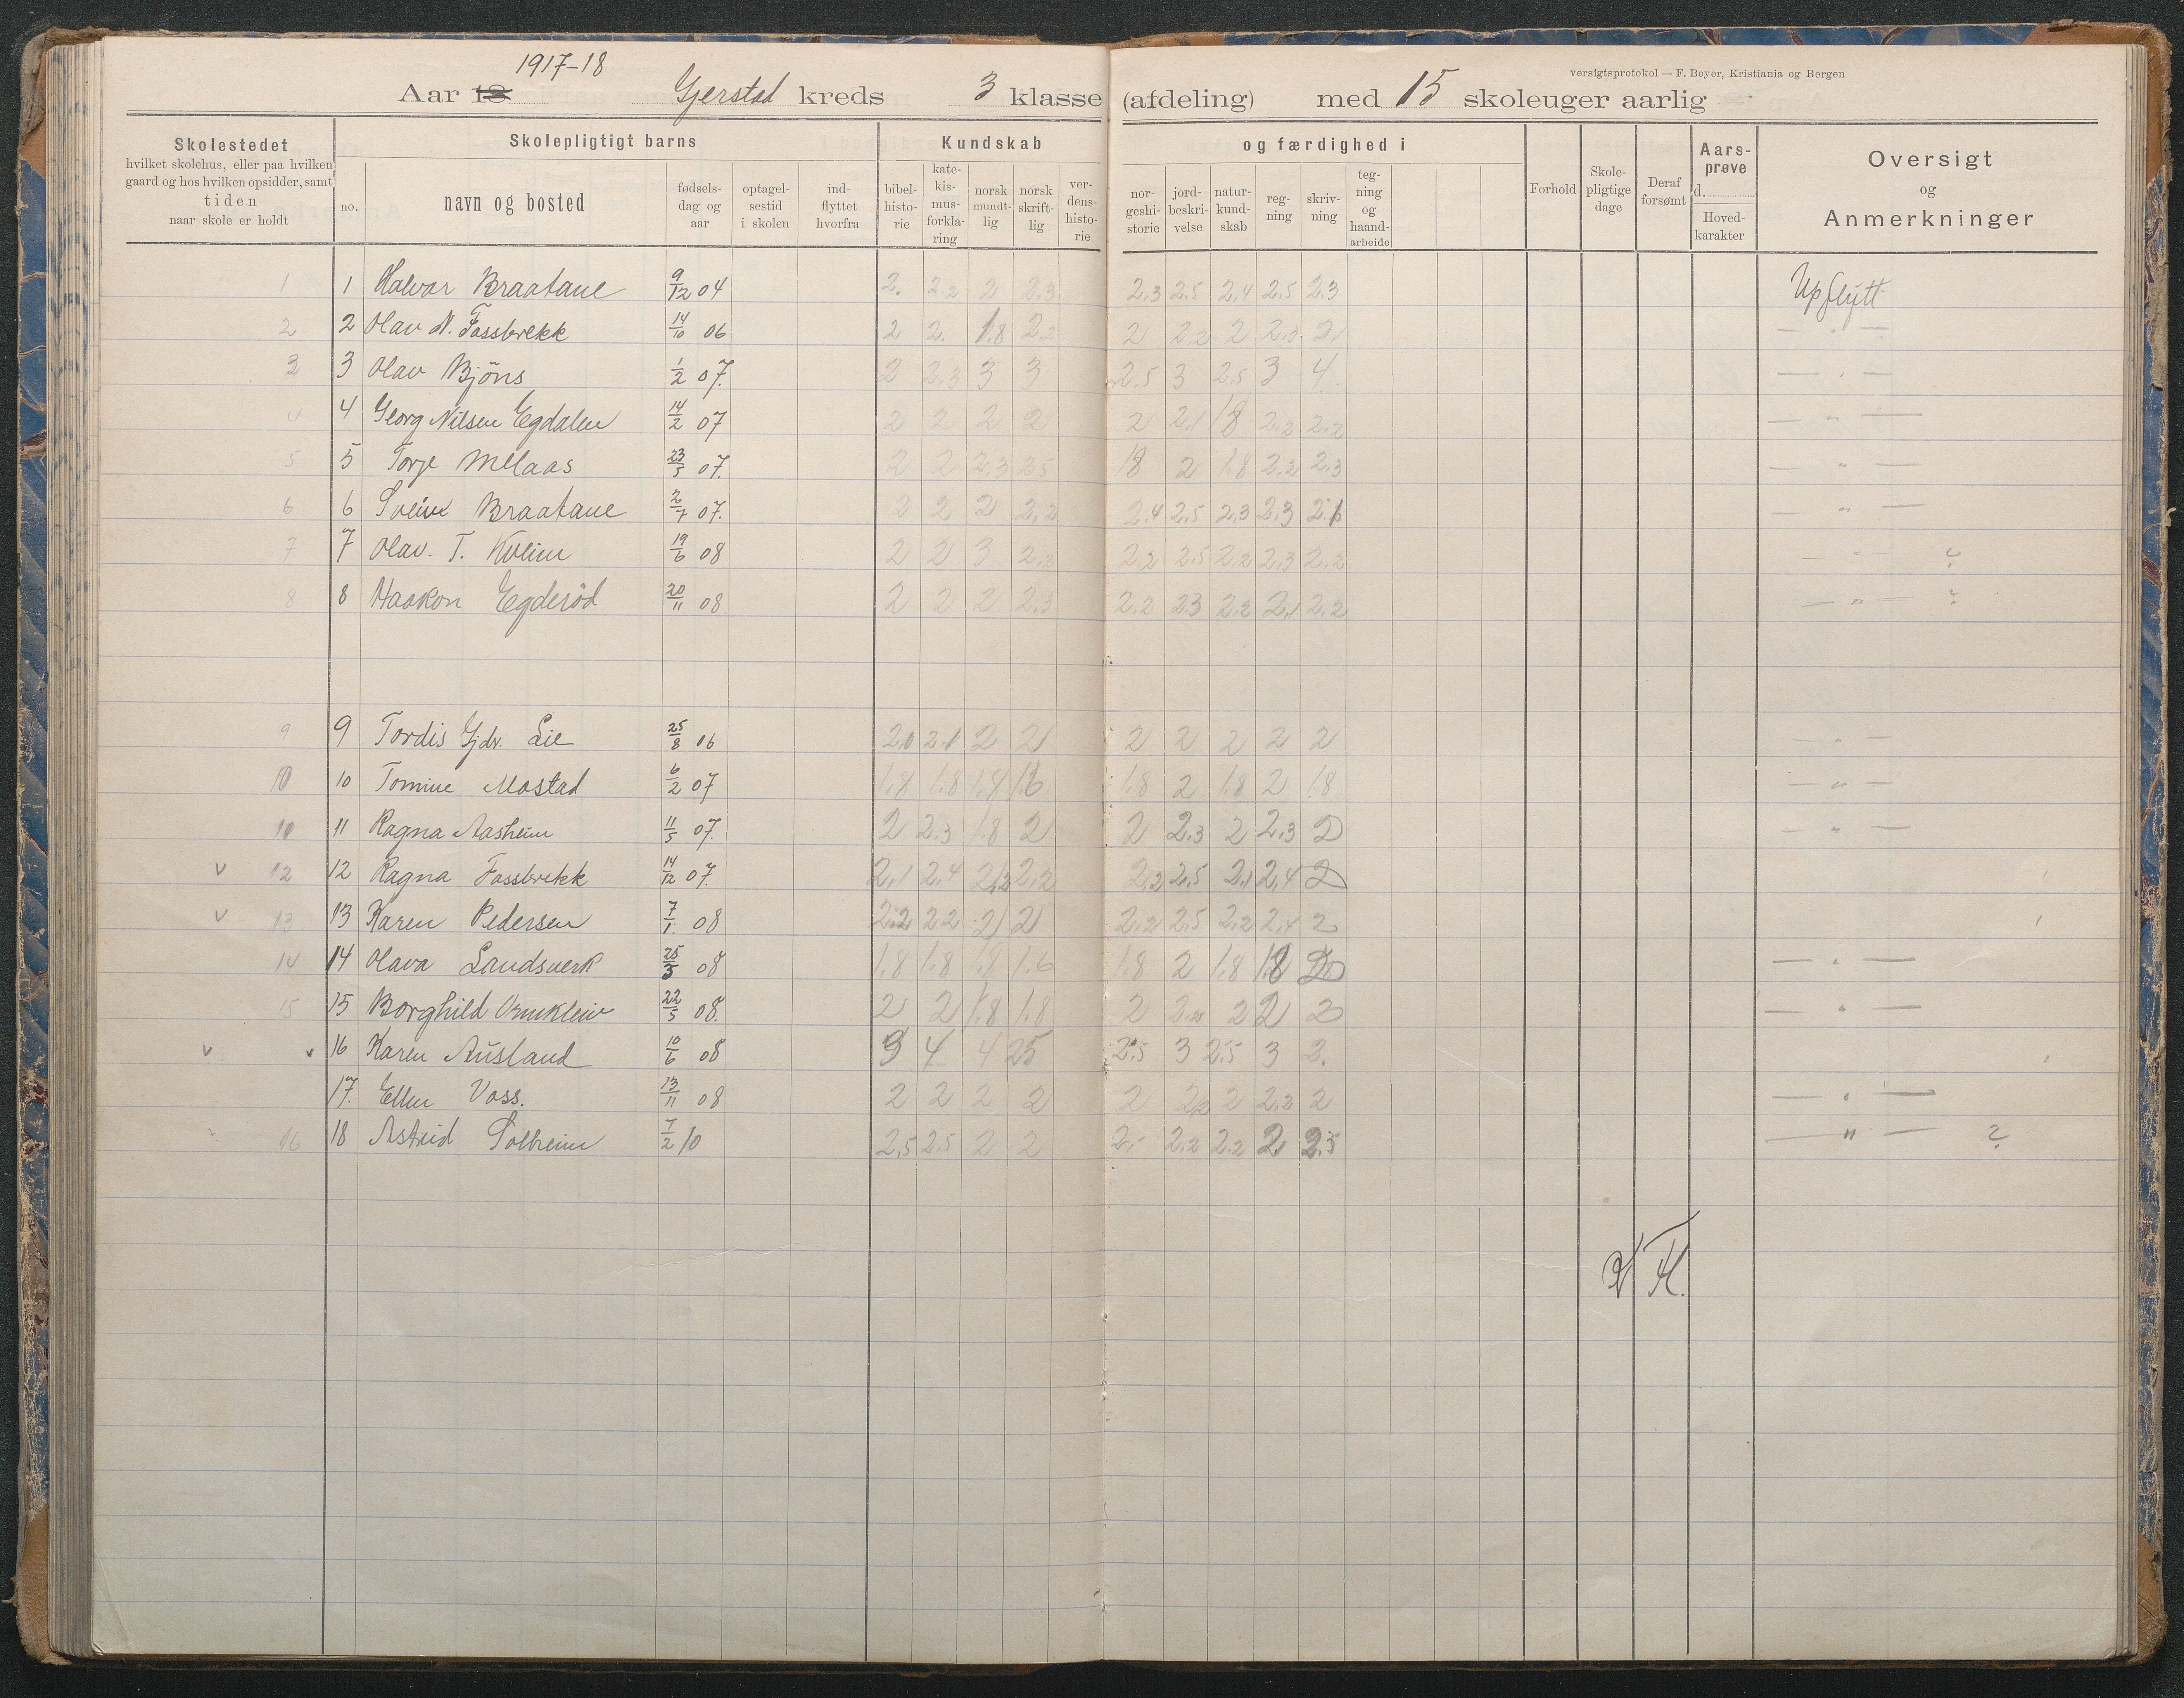 1917-18
Aar 18 Gjerstad kreds 3 klasse (afdeling) med 15 skoleuger aarlig
versigtsprotokol — F. Beyer, Kristiania og Bergen
Skolestedet
hvilket skolehus, eller paa hvilken
gaard og hos hvilken opsidder, samt
tiden
naar skole er holdt
Skolepligtigt barns
no.
navn og bosted
fødsels-
dag og
aar
optagel-
sestid
i skolen
ind-
flyttet
hvorfra
Kundskab
bibel-
histo-
rie
kate-
kis-
mus-
forkla-
ring
norsk
mundt-
lig
norsk
skrift-
lig
ver-
dens-
histo-
rie
og færdighed i
nor-
geshi-
storie
jord-
beskri-
velse
natur-
kund-
skab
reg-
ning
skriv-
ning
teg-
ning
og
haand-
arbeide
Forhold
Skole-
pligtige
dage
Deraf
forsømt
Aars-
prøve
d.
Hoved-
karakter
Oversigt
og
Anmerkninger
1 1 Halvor Braatane 9/12 04 2. 2.2 2 2.3 2.3 2.5 2.4 2.5 2.3 Upflytt
2 2 Olav N. Fossbrekk 14/10 06 2 2. 1.8 2.2 2 2.2 2 2.3 2 — " —
3 3 Olav Bjöns 1/2 07. 2 2.3 3 3 2.5 3 2.5 3 4 — " —
4 4 Georg Nilsen Egdalen 14/2 07 2 2 2 2 2 2.1 1.8 2.2 2.2 — " —
5 5 Torje Melaas 23/5 07. 2 2 2.3 2.5 1.8 2 1.8 2.2 2.3 — " —
6 6 Svein Braatane 2/7 07. 2 2 2 2.2 2.4 2.5 2.3 2.3 2.1 — " —
7 7 Olav. T. Kveim 19/6 08 2 2 3 2.2 2.2 2.5 2.2 2.3 2.2 — " — ?
8 8 Haakon Egderöd 20/11 08 2 2 2 2.3 2.2 2.3 2.2 2.1 2.2 — " — ?
9 9 Tordis Gjdr. Lie 25/8 06 2.0 2.1 2 2 2 2 2 2 2 — " —
10 10 Tomine Mostad 6/2 07 1.8 1.8 1.8 1.6 1.8 2 1.8 2 1.8 — " —
10 11 Ragna Aasheim 11/5 07. 2 2.3 1.8 2 2 2.3 2 2.3 2 — " —
v 12 12 Ragna Fossbrekk 14/12 07. 2.1 2.4 2.2 2.2 2.2 2.5 2.1 2.4 2
v 13 13 Karen Pedersen 7/1. 08 2.2 2.2 2 2 2.2 2.5 2.2 2.4 2
14 14 Olava Landsverk 25/3 08 1.8 1.8 1.8 1.6 1.8 2 1.8 1.8 2 — " —
15 15 Borghild 22/5 08. 2 2 1.8 1.8 2 2.2 2 2 2 — " —
v v 16 Karen Ausland 10/6 08 3 4 4 2.5 2.5 3 2.5 3 2.
17. Ellen Voss. 13/11 08 2 2 2 2 2 2.2 2 2.2 2 — " —
16 18 Astrid Solheim 7/2 10 2.5 2.5 2 2 2. 2.2 2.2 2 2.5 — " — ?